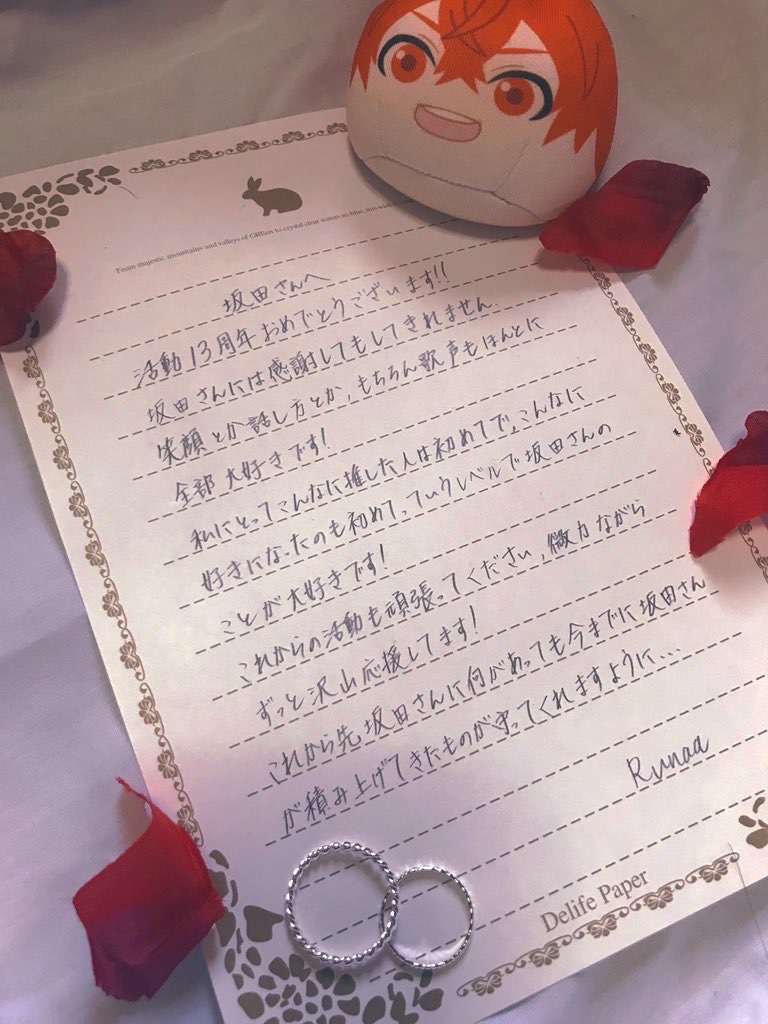 From majestic mountains and valleys of GREen to crystal clear waters so blue, this wish is
坂田さんへ
活動13周年おめでとうございます!!
坂田さんには感謝してもしてきれません.
笑顔とか話し方とか、もちろん歌声もほんとに
全部大好きです!
私にとってこんなに推した人は初めてで、こんなに
好きになったのも初めてっていうレベルで坂田さんの
ことが大好きです!
これからの活動も頑張ってください、微力ながら
ずっと沢山応援してます!
これから先坂田さんに何があっても今までに坂田さん
が積み上げてきたものが守ってくれますように...
Runaa
Delife Paper